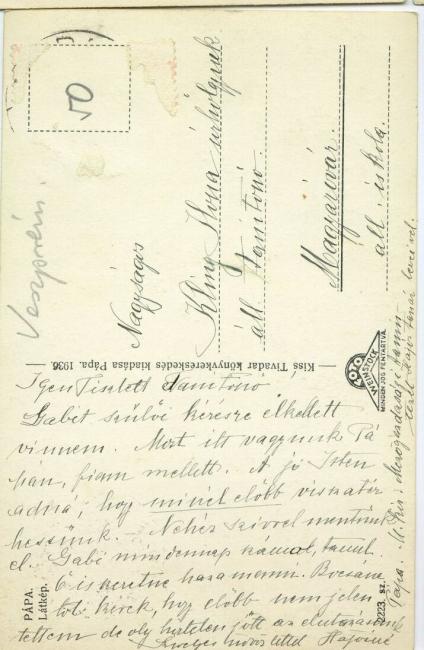 50
Veszprém.
Nagyságos
Kling Ilona úrhölgynek
áll. tanítónő
Magyaróvár.
áll. iskola.
Kiss Tivadar könyvkereskedés kiadása Pápa. 1936
FOTO
WEINSTOCK
MINDEN JOG FENTARTVA.
PÁPA.
Látkép.
223. sz.
Igen Tisztelt Tanítónő
Gabit szülői kérésre el kellett
vinnem. Mert itt vagyunk Pá-
pán, fiam mellett. A jó Isten
adná, hogy minél előbb visszatér
hessünk. Nehéz szívvel mentünk
el. Gabi mindennap számol, tanul.
Ő is szeretne haza menni. Bocsána
tot kérek, hogy előbb nem jelen
tettem de oly hirtelen jött az elutazásunk
üdvözlettel Hajósné
Pápa M. Kir. Mezőgazdasági
Hajós tanár